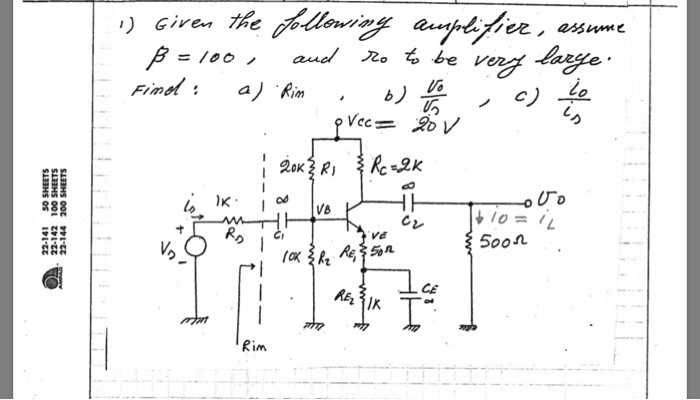 1) Given the following amplifier, assume
β = 100, and ro to be very large.
Find: a) Rin , b) vo/vs , c) io/is
Vcc = 20V
20K R1
Rc=2K
∞
C2
vo
io = iL
500Ω
is
1K
Rs
∞
C1
VB
VE
Vs
+
-
10K R2
RE1 50Ω
RE2 1K
CE
∞
Rin
22-141 50 SHEETS
22-142 100 SHEETS
22-144 200 SHEETS
AMPAD